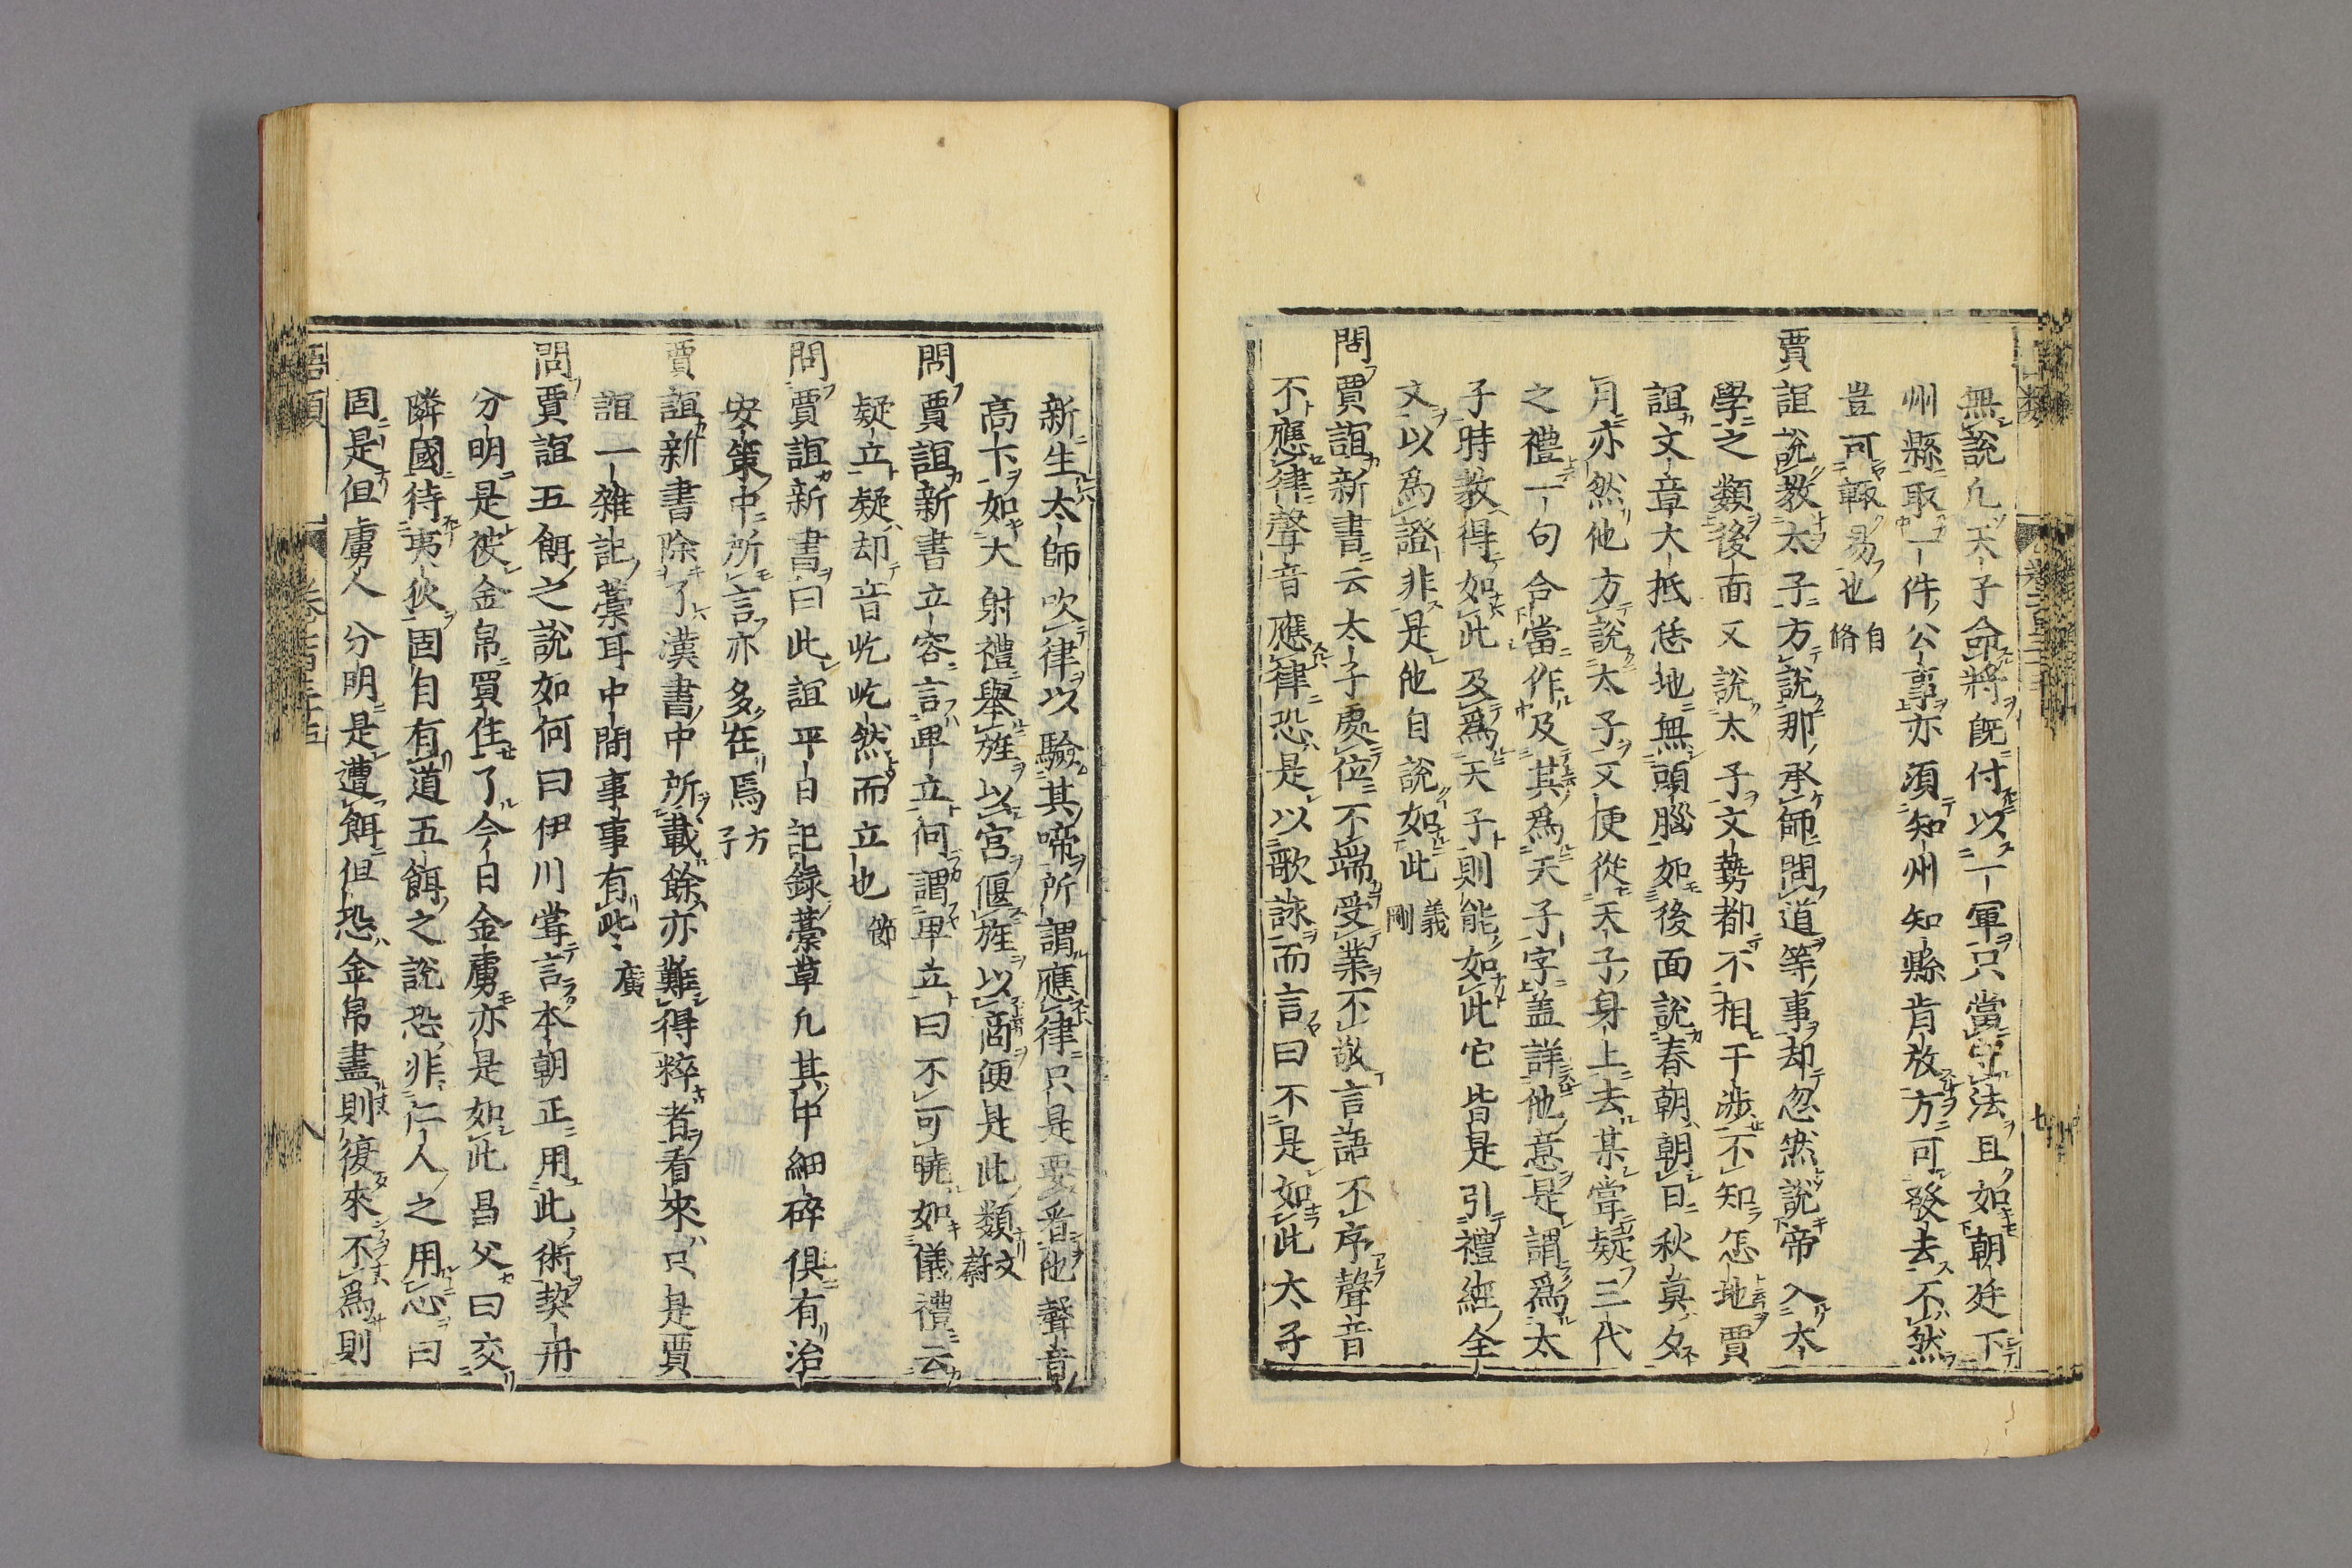 無說凡天子命將既付以一軍只當守法且如朝廷下
州縣取一件公事亦須知州知縣肯放方可發去不然
豈可輒易也 自脩
賈誼說教太子方說那承師問道等事却忽然說帝入太
學之類後面又說太子文勢都不相干涉不知怎地賈
誼文章大抵恁地無頭腦如後面說春朝朝日秋莫夕
月亦然他方說太子又便從天子身上去某嘗疑三代
之禮一句合當作及其爲天子字蓋詳他意是謂爲太
子時教得如此及爲天子則能如此它皆是引禮經全
文以爲證非是他自說如此 義剛
問賈誼新書云太子處位不端受業不敬言語不序聲音
不應律聲音應律恐是以歌詠而言曰不是如此太子
新生太師吹律以驗其啼所謂應律只是要看他聲音
高下如大射禮舉旌以宮偃旌以商便是此類 文蔚
問賈誼新書立容言早立何謂早立曰不可曉如儀禮云
疑立疑却音屹屹然而立也 節
問賈誼新書曰此誼平日記錄藁草凡其中細碎俱有治
安策中所言亦多在焉 方子
賈誼新書除了漢書中所載餘亦難得粹者看來只是賈
誼一雜記藁耳中間事事有些 廣
問賈誼五餌之說如何曰伊川嘗言本朝正用此術契丹
分明是被金帛買住了今日金虜亦是如此昌父曰交
隣國待夷狄固自有道五餌之說恐非仁人之用心曰
固是但虜人分明是遭餌但恐金帛盡則復來不爲則